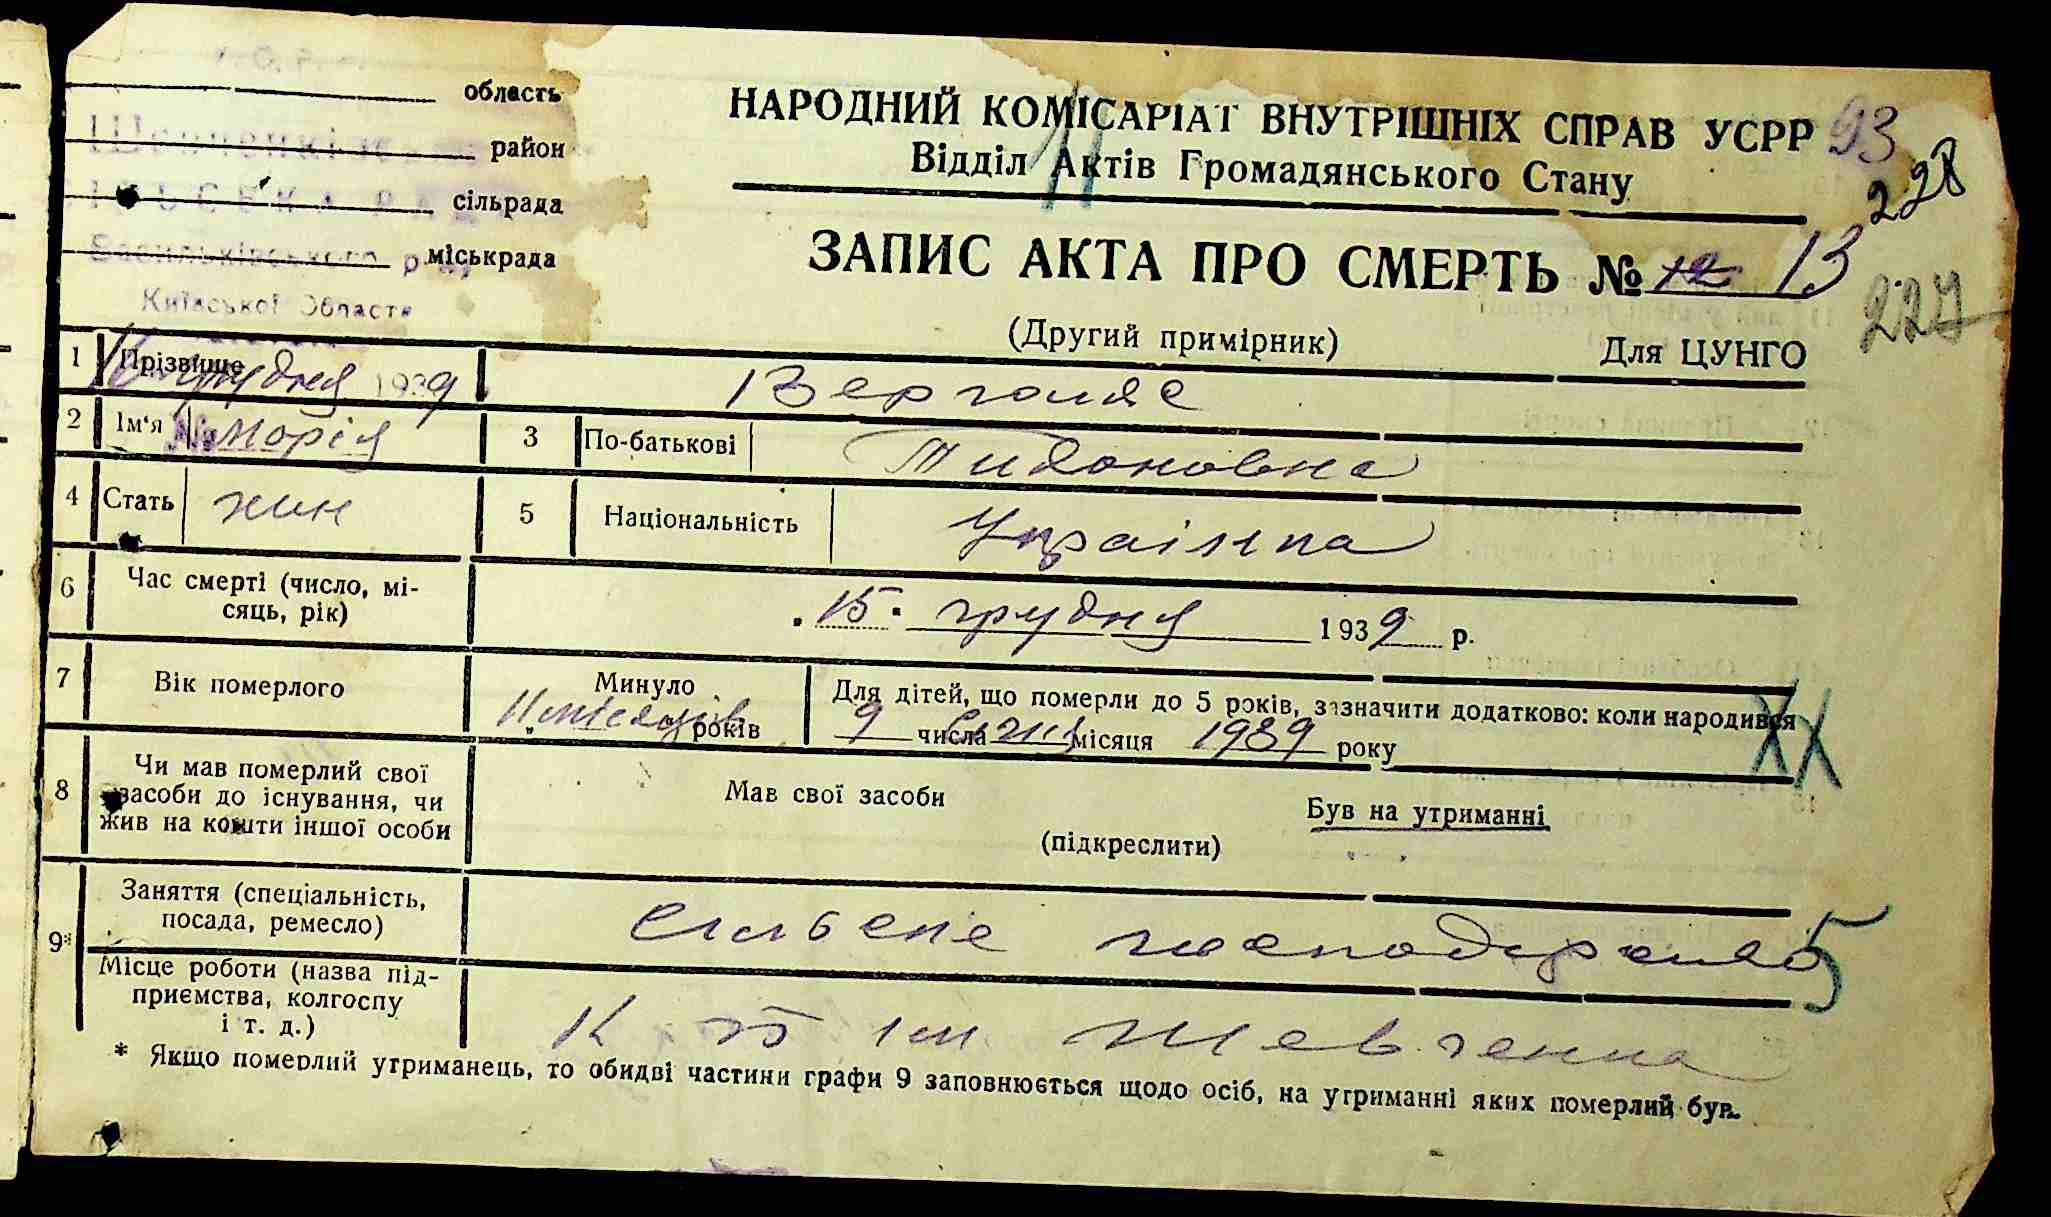 область
район
сільрада
міськрада
Київської Області
НАРОДНИЙ КОМІСАРІАТ ВНУТРІШНІХ СПРАВ УСРР 93
Відділ Актів Громадянського Стану
228
ЗАПИС АКТА ПРО СМЕРТЬ № 12 13
227
(Другий примірник)
Для ЦУНГО
1 Прізвище
грудня 1939
2 Ім'я Морія 3 По-батькові
4 Стать жин 5 Національність Українка
6 Час смерті (число, мі-
сяць, рік)
15. грудня 1939 р.
7 Вік померлого Минуло 11 місяців років
Для дітей, що померли до 5 років, зазначити додатково: коли народився
9 числа січня місяця 1939 року
XX
8 Чи мав померлий свої
засоби до існування, чи
жив на кошти іншої особи
Мав свої засоби Був на утриманні
(підкреслити)
9* Заняття (спеціальність,
посада, ремесло)
5
Місце роботи (назва під-
приємства, колгоспу
і т. д.)
ім Шевченка
* Якщо померлий утриманець, то обидві частини графи 9 заповнюється щодо осіб, на утриманні яких померлий був.